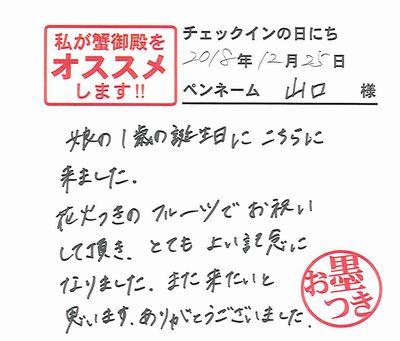 私が蟹御殿を
オススメ
します!!
チェックインの日にち
2018年12月25日
ペンネーム 山口 様
娘の1歳の誕生日に こちらに
来ました.
花火つきの フルーツで お祝い
して頂き、とても よい記念に
なりました. また来たいと
思います. ありがとうございました.
お墨
つき